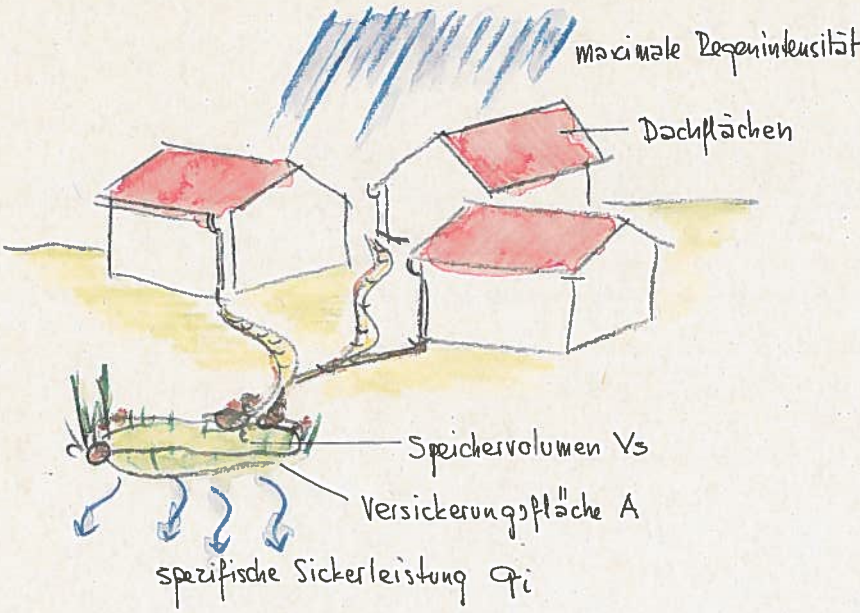 maximale Regenintensität
Dachflächen
Speichervolumen Vs
Versickerungsfläche A
spezifische Sickerleistung qi